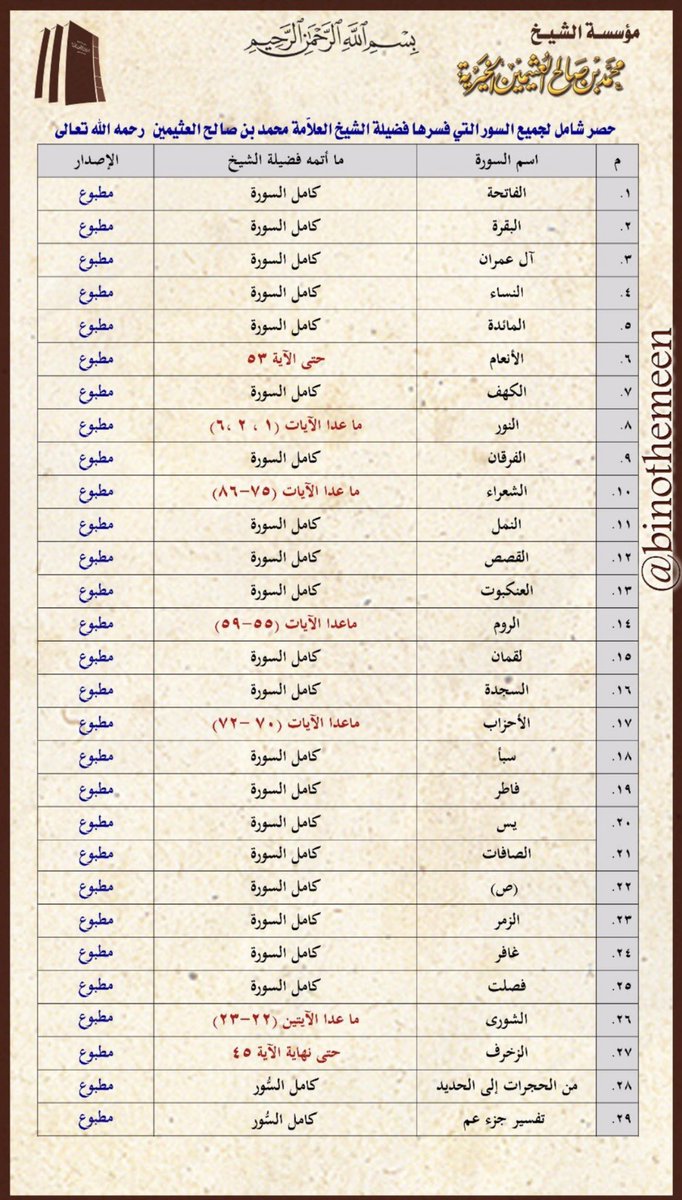 بِسْمِ اللَّهِ الرَّحْمَٰنِ الرَّحِيمِ
مؤسسة الشيخ
محمد بن صالح العثيمين الخيرية
حصر شامل لجميع السور التي فسرها فضيلة الشيخ العلاّمة محمد بن صالح العثيمين رحمه الله تعالى
م اسم السورة ما أتمه فضيلة الشيخ الإصدار
١. الفاتحة كامل السورة مطبوع
٢. البقرة كامل السورة مطبوع
٣. آل عمران كامل السورة مطبوع
٤. النساء كامل السورة مطبوع
٥. المائدة كامل السورة مطبوع
٦. الأنعام حتى الآية ٥٣ مطبوع
٧. الكهف كامل السورة مطبوع
٨. النور ما عدا الآيات (١ ، ٢ ،٦) مطبوع
٩. الفرقان كامل السورة مطبوع
١٠. الشعراء ما عدا الآيات (٧٥-٨٦) مطبوع
١١. النمل كامل السورة مطبوع
١٢. القصص كامل السورة مطبوع
١٣. العنكبوت كامل السورة مطبوع
١٤. الروم ماعدا الآيات (٥٥-٥٩) مطبوع
١٥. لقمان كامل السورة مطبوع
١٦. السجدة كامل السورة مطبوع
١٧. الأحزاب ماعدا الآيات (٧٠ -٧٢) مطبوع
١٨. سبأ كامل السورة مطبوع
١٩. فاطر كامل السورة مطبوع
٢٠. يس كامل السورة مطبوع
٢١. الصافات كامل السورة مطبوع
٢٢. (ص) كامل السورة مطبوع
٢٣. الزمر كامل السورة مطبوع
٢٤. غافر كامل السورة مطبوع
٢٥. فصلت كامل السورة مطبوع
٢٦. الشورى ما عدا الآيتين (٢٢-٢٣) مطبوع
٢٧. الزخرف حتى نهاية الآية ٤٥ مطبوع
٢٨. من الحجرات إلى الحديد كامل السُّور مطبوع
٢٩. تفسير جزء عم كامل السُّور مطبوع
@binothemeen